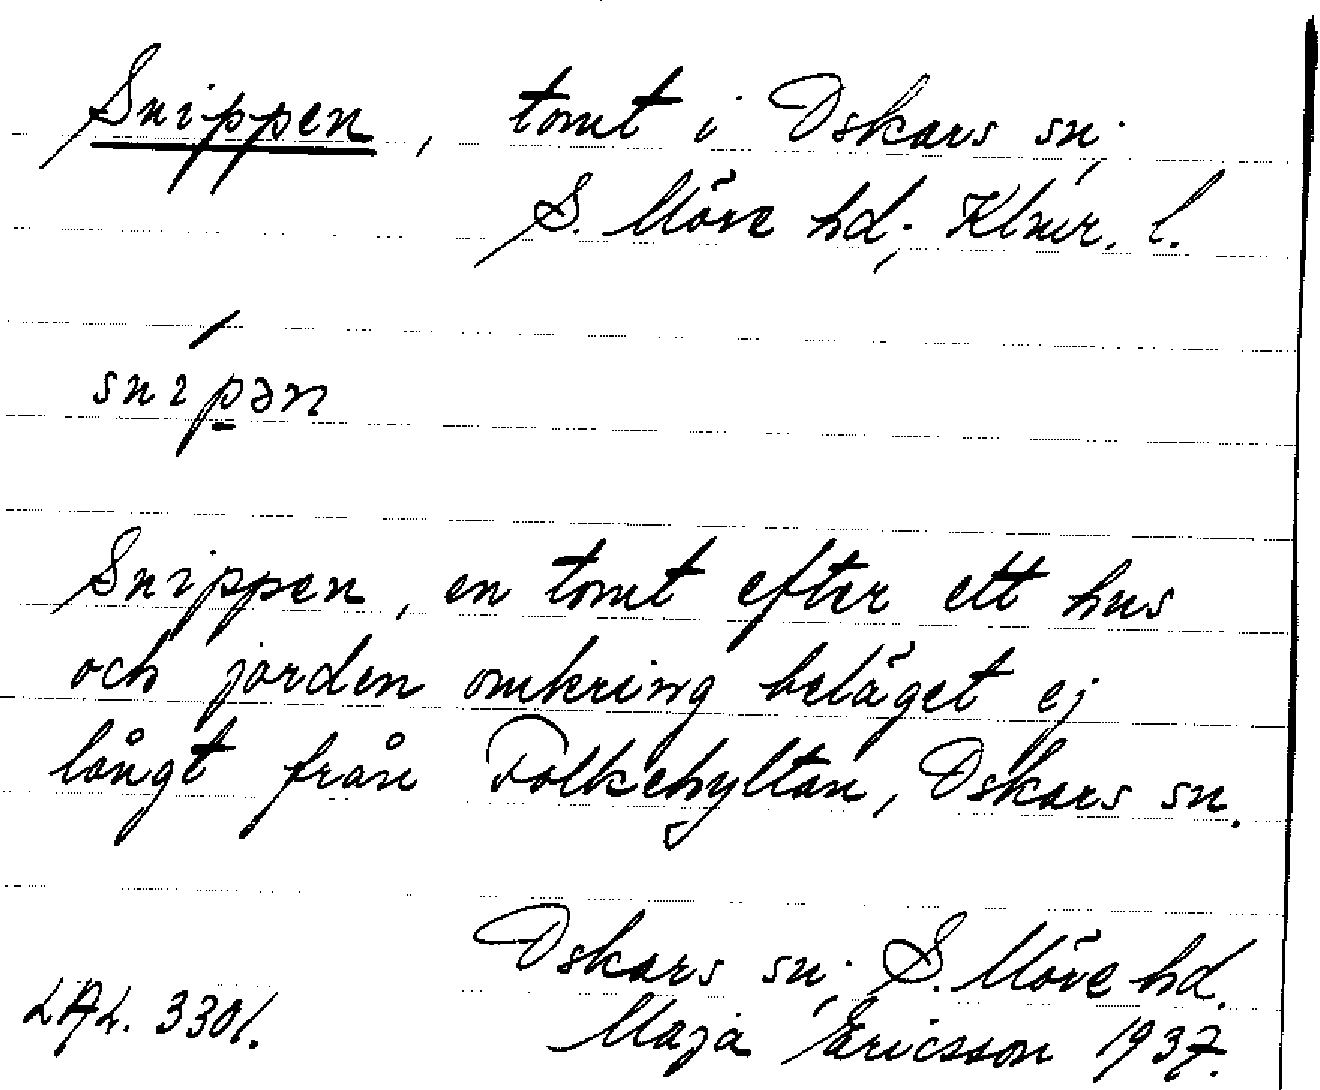 Snippen, tomt i Oskars sn;
S. Möre hd; Klmr. l.
snípən
Snippen, en tomt efter ett hus
och jorden omkring beläget ej
långt från Folkehyltan, Oskars sn.
Oskars sn; S. Möre hd.
LAL. 3301. Maja Ericsson 1937.